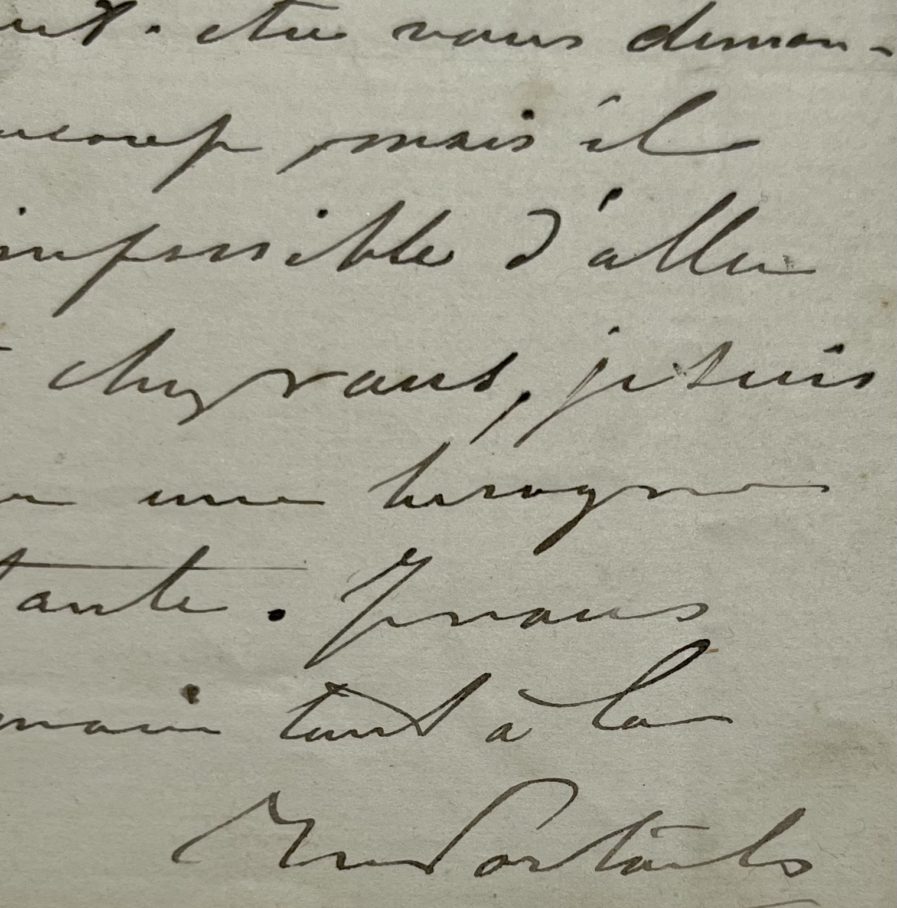 vous deman-
ucoup, mais il
impossible d'aller
chez vous, je suis
une besogne
tante. Je vous
main tard à la
Portaels